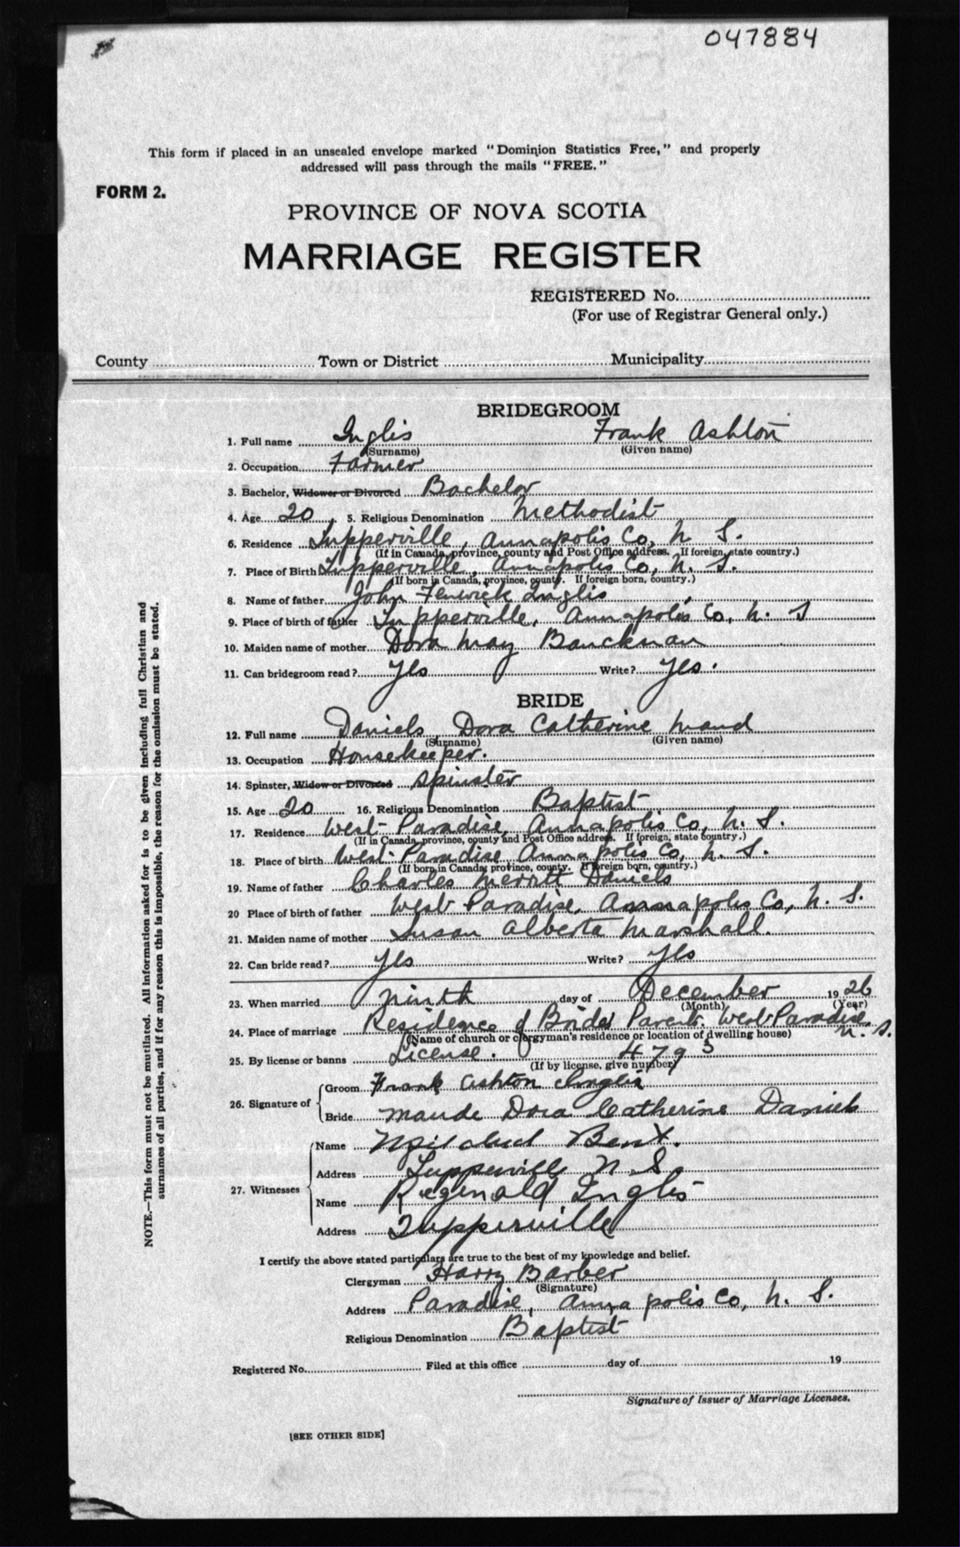 047884
This form if placed in an unsealed envelope marked "Dominion Statistics Free," and properly
addressed will pass through the mails "FREE."
FORM 2.
PROVINCE OF NOVA SCOTIA
MARRIAGE REGISTER
REGISTERED No.
(For use of Registrar General only.)
County Town or District Municipality
BRIDEGROOM
1. Full name Inglis Frank Ashton
(Surname) (Given name)
2. Occupation Farmer
3. Bachelor, Widower or Divorced Bachelor
4. Age 20 5. Religious Denomination Methodist
6. Residence Tupperville, Annapolis Co, N. S.
(If in Canada, province, county and Post Office address. If foreign, state country.)
7. Place of Birth Tupperville, Annapolis Co, N. S.
(If born in Canada, province, county. If foreign born, country.)
8. Name of father John Fenwick Inglis
9. Place of birth of father Tupperville, Annapolis Co, N. S
10. Maiden name of mother Dora May Banckman
11. Can bridegroom read? Yes Write? Yes.
BRIDE
12. Full name Daniels Dora Catherine Maud
(Surname) (Given name)
13. Occupation Housekeeper.
14. Spinster, Widow or Divorced Spinster
15. Age 20 16. Religious Denomination Baptist
17. Residence West Paradise, Annapolis Co, N. S.
(If in Canada, province, county and Post Office address. If foreign, state country.)
18. Place of birth West Paradise, Annapolis Co, N. S.
(If born in Canada, province, county. If foreign born, country.)
19. Name of father Charles Merritt Daniels
20 Place of birth of father West Paradise, Annapolis Co, N. S.
21. Maiden name of mother Susan Alberta Marshall.
22. Can bride read? Yes Write? Yes
23. When married Ninth day of December 1926
(Month) (Year)
24. Place of marriage Residence of Brides Parents West Paradise N. S.
(Name of church or clergyman's residence or location of dwelling house)
25. By license or banns License. 4793
(If by license, give number)
26. Signature of
Groom Frank Ashton Inglis
Bride Maude Dora Catherine Daniels
27. Witnesses
Name Bent.
Address Tupperville N. S.
Name Reginald Inglis
Address Tupperville
I certify the above stated particulars are true to the best of my knowledge and belief.
Clergyman Harry Barber
(Signature)
Address Paradise, Annapolis Co, N. S.
Religious Denomination Baptist
Registered No. Filed at this office day of 19
Signature of Issuer of Marriage Licenses.
[SEE OTHER SIDE]
NOTE.—This form must not be mutilated. All information asked for is to be given including full Christian and
surnames of all parties, and if for any reason this is impossible, the reason for the omission must be stated.